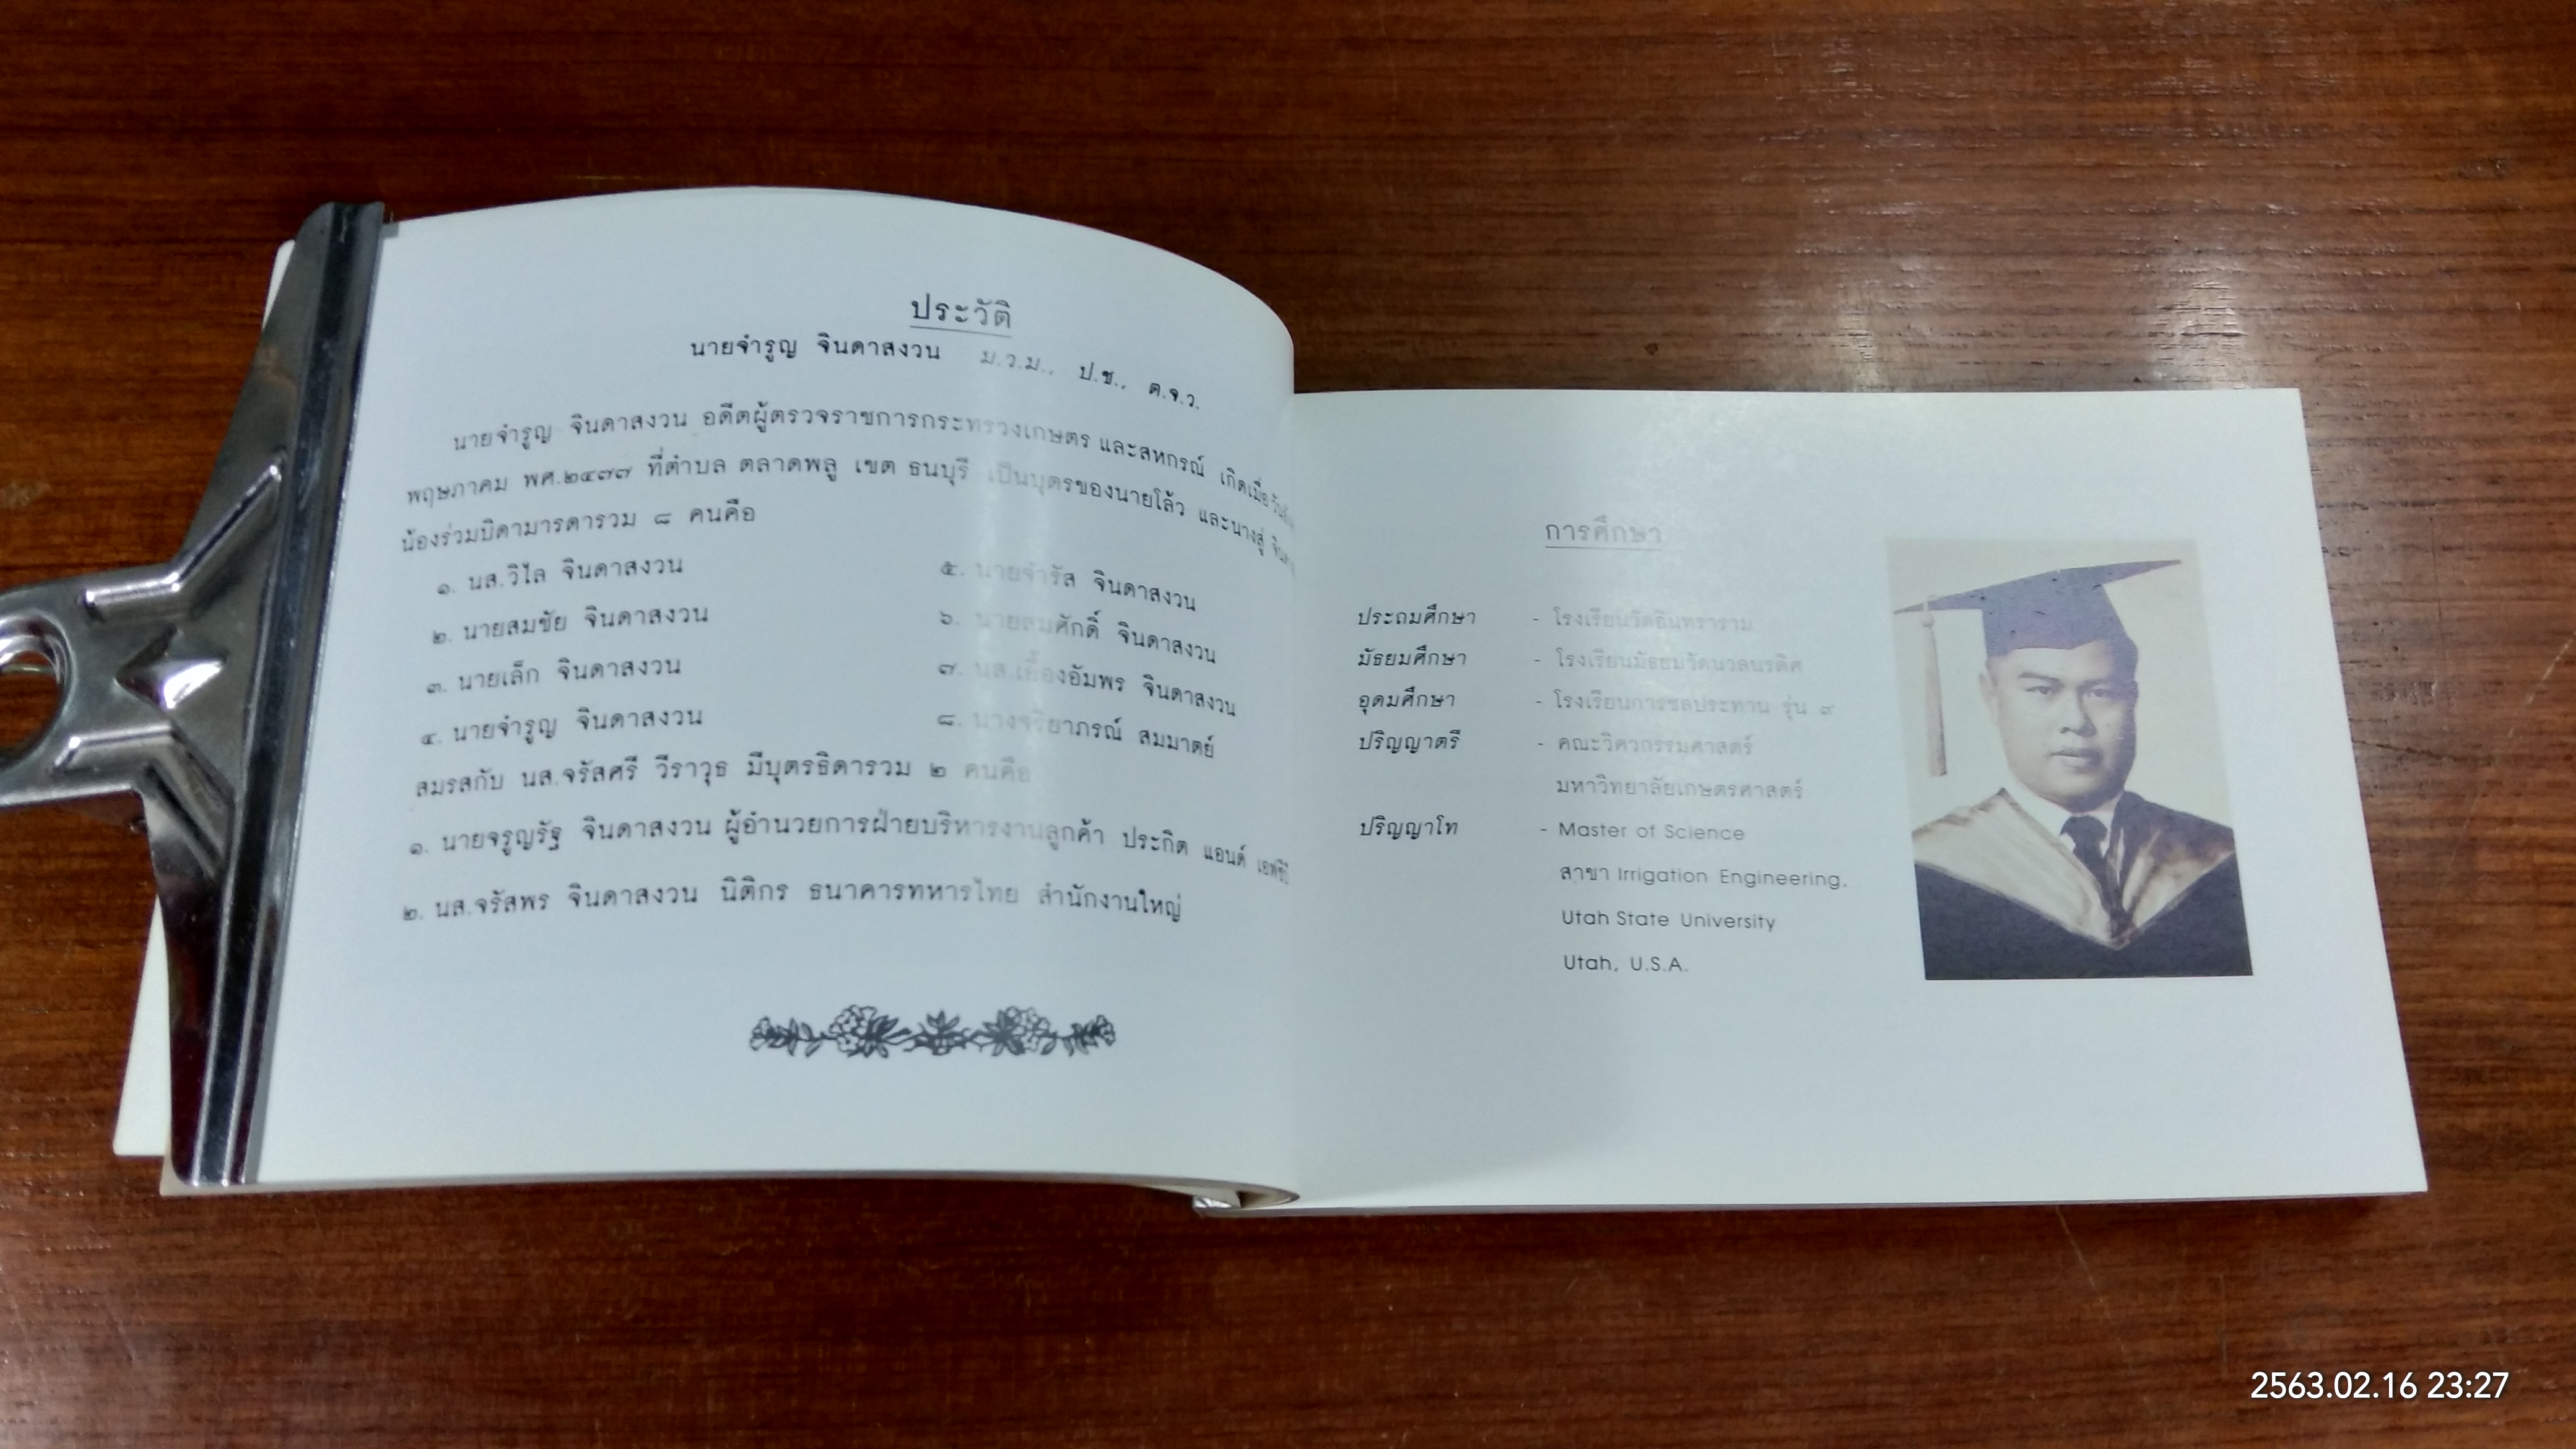 ประวัติ
นายจำรูญ จินดาสงวน ม.ว.ม., ป.ช., ต.จ.ว.
นายจำรูญ จินดาสงวน อดีตผู้ตรวจราชการกระทรวงเกษตร และสหกรณ์ เกิดเมื่อวันที่
พฤษภาคม พศ.๒๔๗๗ ที่ตำบล ตลาดพลู เขต ธนบุรี เป็นบุตรของนายโล้ว และนางสู่
น้องร่วมบิดามารดารวม ๘ คนคือ
๑. นส.วิไล จินดาสงวน
๒. นายสมชัย จินดาสงวน
๓. นายเล็ก จินดาสงวน
๔. นายจำรูญ จินดาสงวน
๕. นายจำรัส จินดาสงวน
๖. นายสมศักดิ์ จินดาสงวน
๗. นส.เอื้องอัมพร จินดาสงวน
๘. นางจริยาภรณ์ สมมาตย์
สมรสกับ นส.จรัสศรี วีราวุธ มีบุตรธิดารวม ๒ คนคือ
๑. นายจรูญรัฐ จินดาสงวน ผู้อำนวยการฝ่ายบริหารงานลูกค้า ประกิต แอนด์ เอฟซีบี
๒. นส.จรัสพร จินดาสงวน นิติกร ธนาคารทหารไทย สำนักงานใหญ่
การศึกษา
ประถมศึกษา - โรงเรียนวัดอินทราราม
มัธยมศึกษา - โรงเรียนมัธยมวัดนวลนรดิศ
อุดมศึกษา - โรงเรียนการชลประทาน รุ่น ๙
ปริญญาตรี - คณะวิศวกรรมศาสตร์
มหาวิทยาลัยเกษตรศาสตร์
ปริญญาโท - Master of Science
สาขา Irrigation Engineering,
Utah State University
Utah, U.S.A.
2563.02.16 23:27